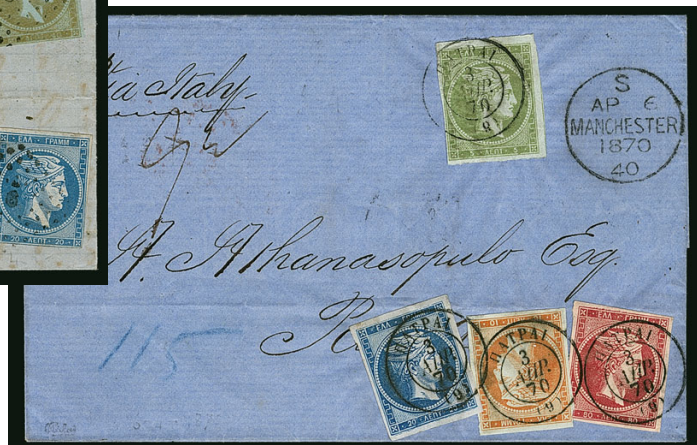 ΕΛΛ ΓΡΑΜΜ
20 ΛΕΠΤ 20
via Italy
ΠΑΤΡΑΙ
3
ΑΠΡ.
70
(9)
5 ΛΕΠΤ 5
S
AP 6
MANCHESTER
1870
40
A. Athanasopulo Esq.
115
ΠΑΤΡΑΙ
3
ΑΠΡ.
70
(9)
20 ΛΕΠΤ 20
ΠΑΤΡΑΙ
3
ΑΠΡ.
70
(9)
ΠΑΤΡΑΙ
3
ΑΠΡ.
70
(9)
80